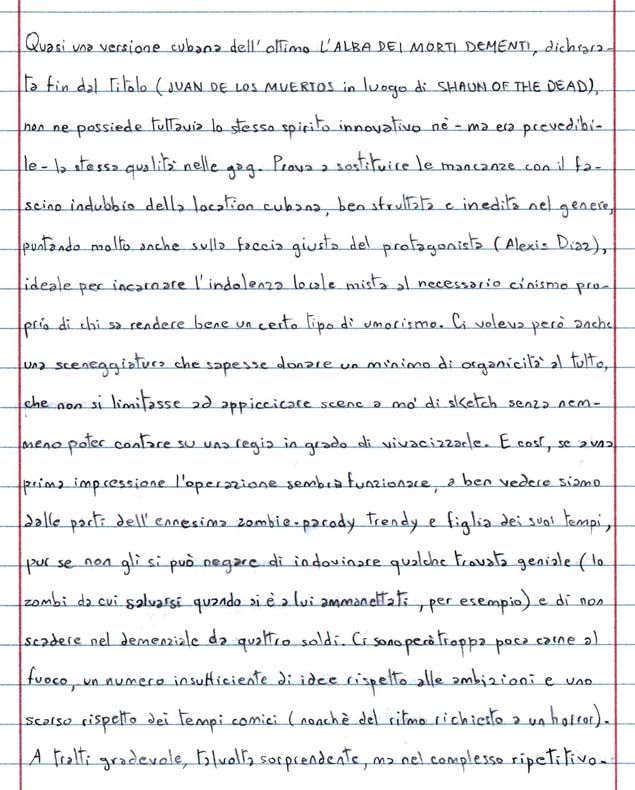 Quasi una versione cubana dell'ottimo L'ALBA DEI MORTI DEMENTI, dichiara-
ta fin dal Titolo (JUAN DE LOS MUERTOS in luogo di SHAUN OF THE DEAD),
non ne possiede tuttavia lo stesso spirito innovativo nè - ma era prevedibi-
le - la stessa qualità nelle gag. Prova a sostituire le mancanze con il fa-
scino indubbio della location cubana, ben sfruttata e inedita nel genere,
puntando molto anche sulla faccia giusta del protagonista (Alexis Diaz),
ideale per incarnare l'indolenza locale mista al necessario cinismo pro-
prio di chi sa rendere bene un certo tipo di umorismo. Ci voleva però anche
una sceneggiatura che sapesse donare un minimo di organicità al tutto,
che non si limitasse ad appiccicare scene a mo' di sketch senza nem-
meno poter contare su una regia in grado di vivacizzarle. E così, se a una
prima impressione l'operazione sembra funzionare, a ben vedere siamo
dalle parti dell'ennesima zombie-parody trendy e figlia dei suoi tempi,
pur se non gli si può negare di indovinare qualche trovata geniale (lo
zombi da cui salvarsi quando si è a lui ammanettati, per esempio) e di non
scadere nel demenziale da quattro soldi. Ci sono però troppa poca carne al
fuoco, un numero insufficiente di idee rispetto alle ambizioni e uno
scarso rispetto dei tempi comici (nonchè del ritmo richiesto a un horror).
A tratti gradevole, talvolta sorprendente, ma nel complesso ripetitivo.